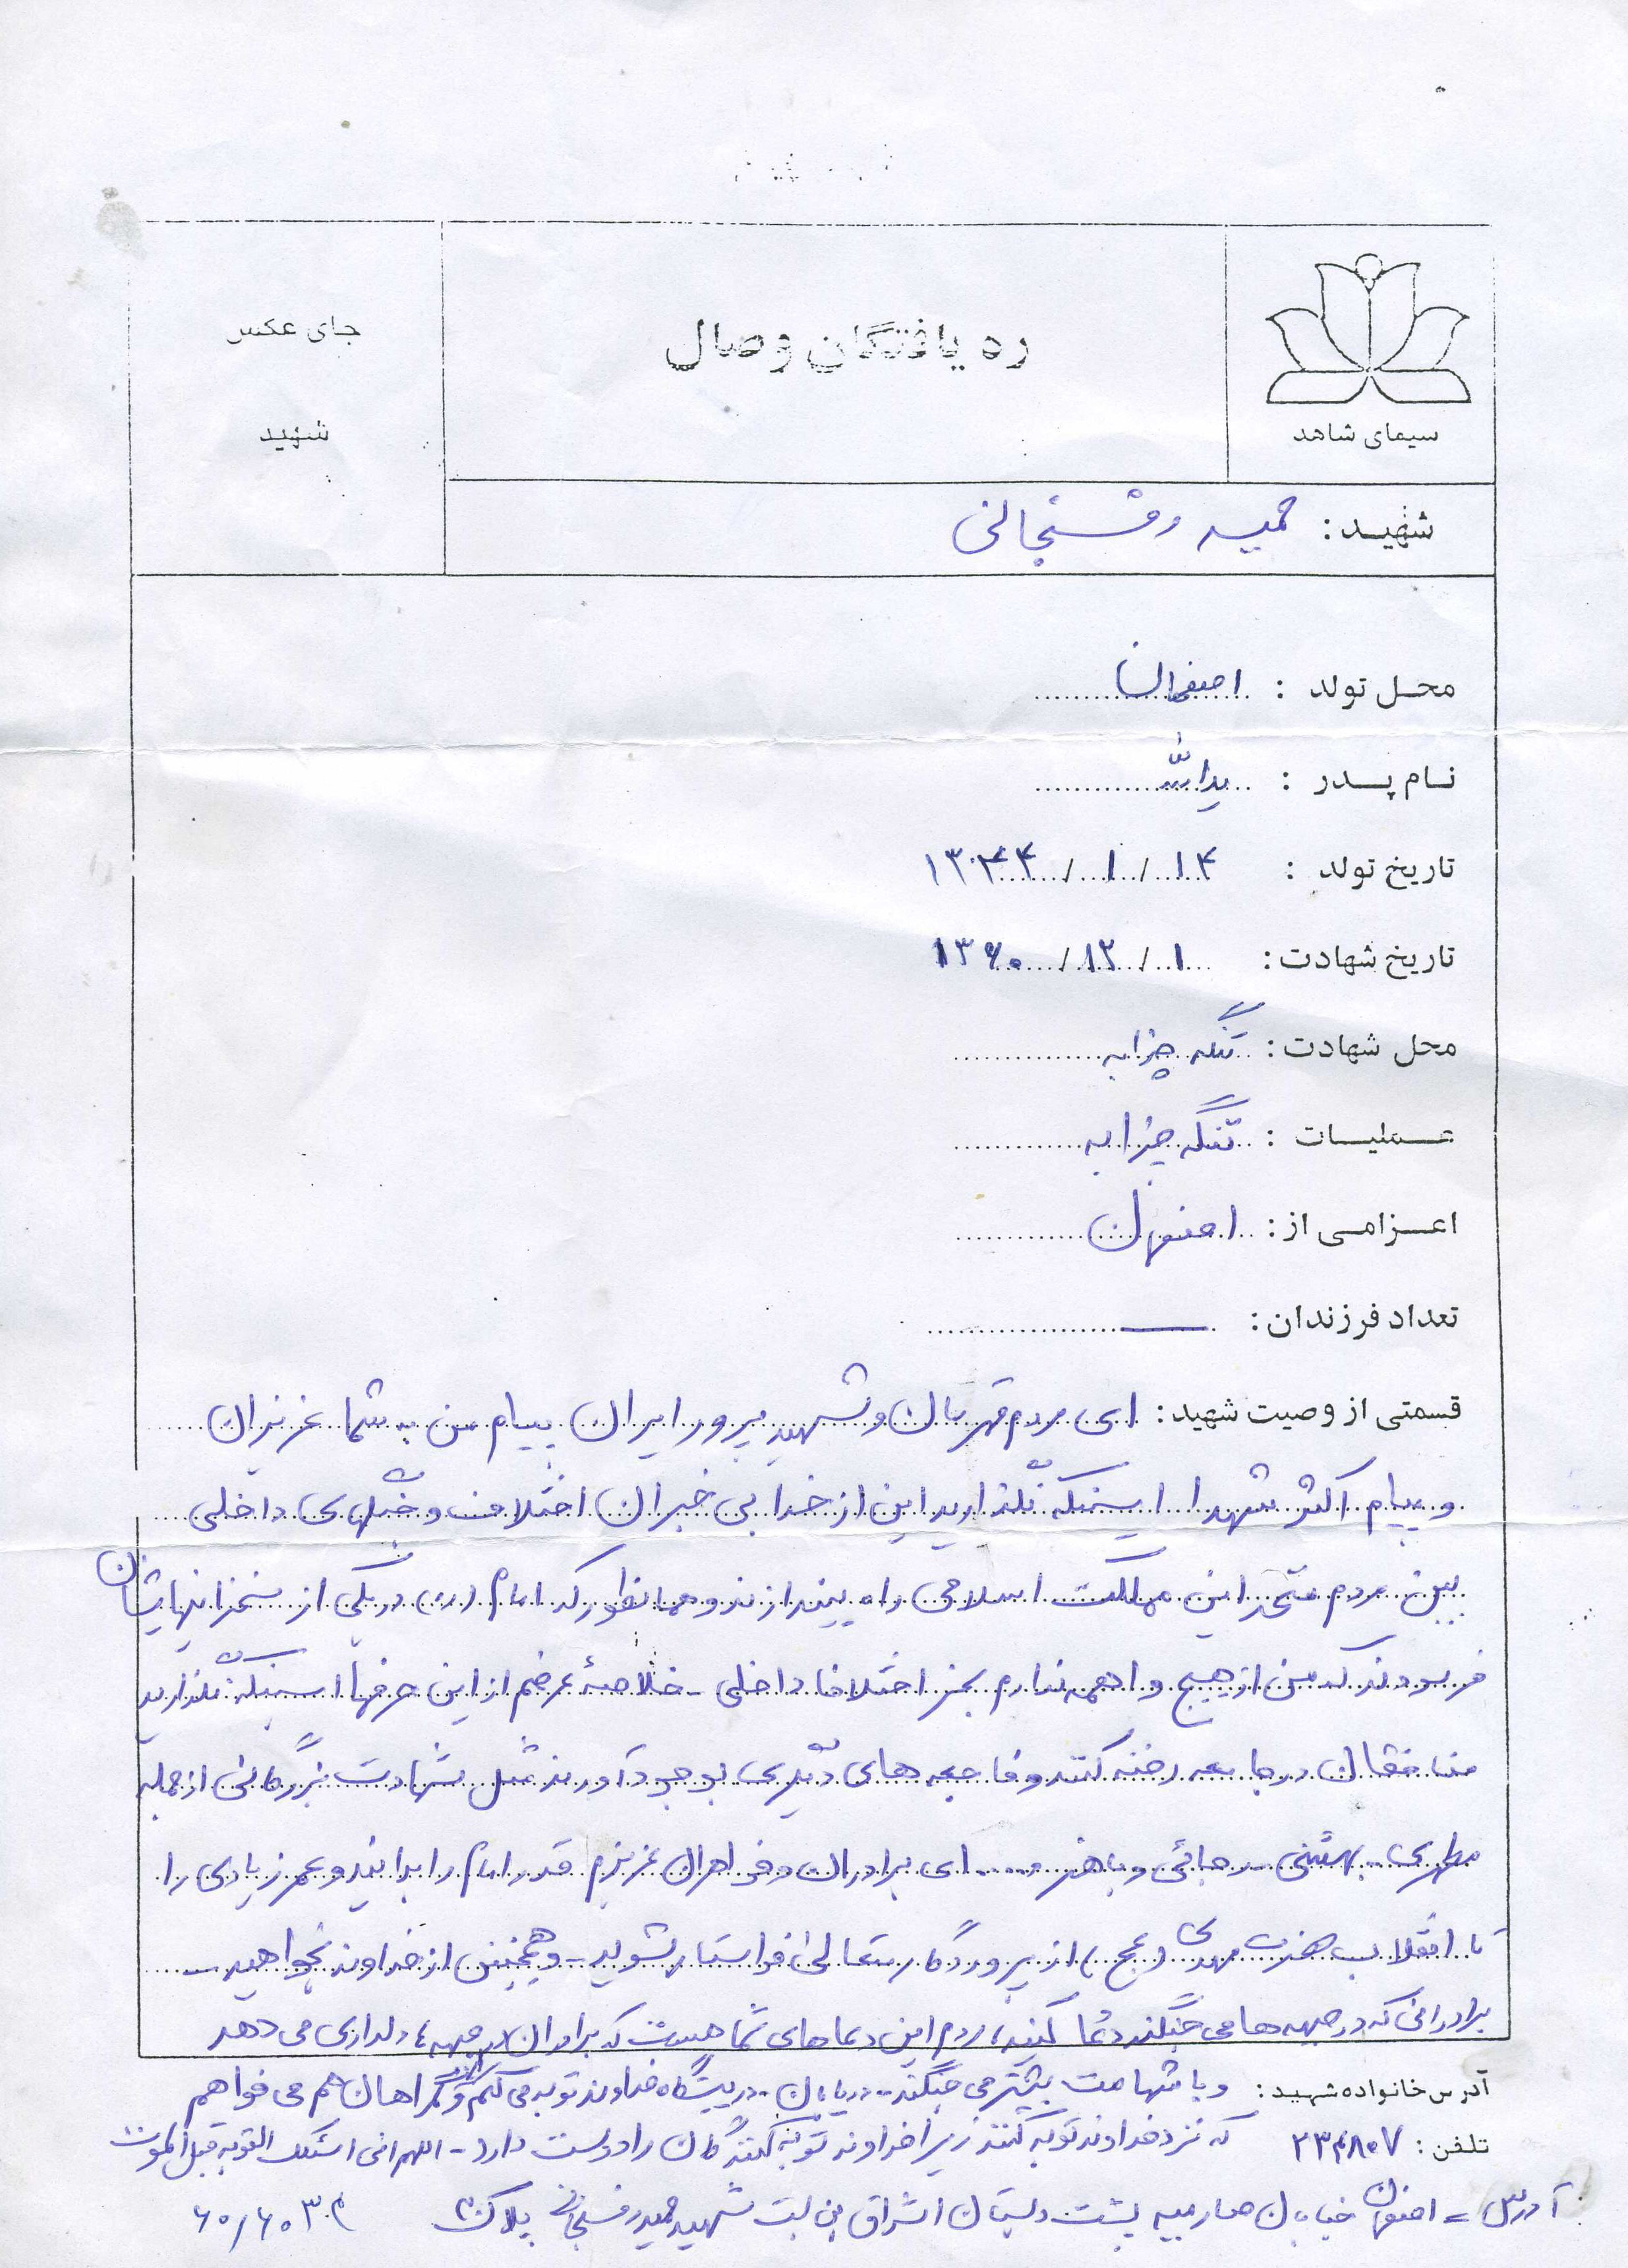 سیمای شاهد
ره یافتگان وصال
جای عکس
شهید
شهید: حمید رفسنجانی
محل تولد : اصفهان
نام پدر : یدالله
تاریخ تولد : ۱۴ / ۱ / ۱۳۴۴
تاریخ شهادت: ۱ / ۱۲ / ۱۳۶۰
محل شهادت: تنگه چزابه
عملیات : تنگه چزابه
اعزامی از: اصفهان
تعداد فرزندان: ــــ
قسمتی از وصیت شهید: ای مردم قهرمان و شهید پرور ایران پیام من به شما عزیزان
و پیام اکثر شهدا اینستکه نگذارید این از خدا بی خبران اختلاف و جنگهای داخلی
بین مردم متحد این مملکت اسلامی راه بیندازند و همانطور که امام (ره) در یکی از سخنرانیهایشان
فرمودند که من از هیچ واهمه ندارم بجز اختلافا داخلی - خلاصهٔ عرضم از این حرفها اینستکه نگذارید
منافقان در جامعه رخنه کنند و فاجعه های دیگری بوجود آورند مثل شهادت بزرگانی از جمله
مطهری - بهشتی - رجائی و باهنر و .... ای برادران و خواهران عزیزم قدر امام را بدانید و عمر زیادی را
تا انقلاب حضرت مهدی (عج) از پروردگار متعالی خواستار بشوید - و همچنین از خداوند بخواهید -
برادرانی که در جبهه ها می جنگند دعا کنید، مردم این دعاهای شما هست که برادران در جبهه ، دلداری می دهد
آدرس خانواده شهید: و با شهامت بیشتر می جنگند - در پایان - در پیشگاه خداوند توبه می کنم و از گمراهان هم می خواهم
که نزد خداوند توبه کنند زیرا خداوند توبه کنندگان را دوست دارد - اللهم انی اسئلک التوبه قبل الموت
تلفن: ۲۳۴۸۰۷
آدرس = اصفهان خیابان صارمیه پشت دبستان اشراق بن بست شهید حمید رفسنجانی پلاک